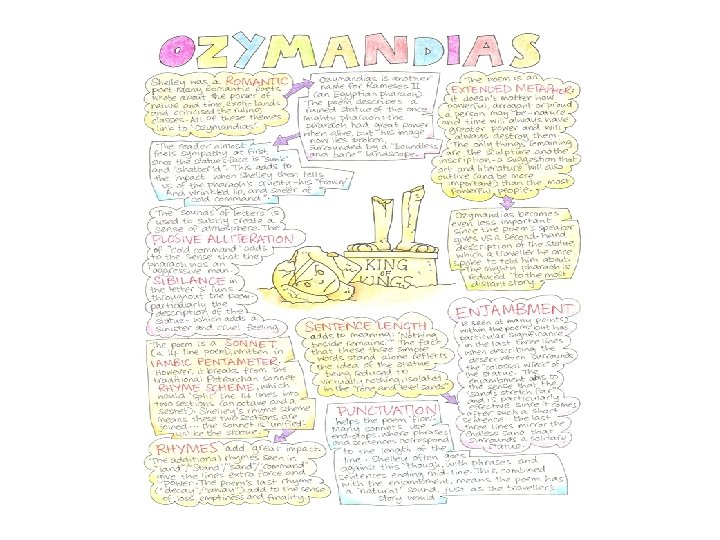 OZYMANDIAS
Shelley was a ROMANTIC
poet. Many romantic poets
wrote about the power of
nature and time, exotic lands
and criticised the ruling
classes. All of these themes
link to "Ozymandias".
Ozymandias is another
name for Rameses II
(an Egyptian pharaoh).
The poem describes a
ruined statue of the once
mighty pharaoh: the
pharaoh had great power
when alive, but his image
now lies broken,
surrounded by a "boundless
and bare" landscape.
The poem is an
EXTENDED METAPHOR:
it doesn't matter how
powerful, arrogant or proud
a person may be - nature
and time will always have
greater power and will
always destroy them.
The only things remaining
are the sculpture and the
inscription - a suggestion that
art and literature will also
outlive (and be more
important) than the most
powerful people.
The reader almost
feels sympathy at first
since the statue's face is "sunk"
and "shatter'd". This adds to
the impact when Shelley then tells
us of the pharaoh's cruelty - his "frown/
And wrinkled lip, and sneer of
cold command".
The "sounds" of letters is
used to subtly create a
sense of atmosphere. The
PLOSIVE ALLITERATION
of "cold command" adds
to the sense that the
pharaoh was an
aggressive man.
SIBILANCE in
the letter 's' runs
throughout the poem -
particularly the
description of the
statue - which adds a
sinister and cruel feeling.
KING
OF
KINGS
Ozymandias becomes
even less important
since the poem's speaker
gives us a second-hand
description of the statue,
which a traveller he once
spoke to told him about.
The mighty pharaoh is
reduced to the most
distant story.
The poem is a SONNET
(a 14 line poem), written in
IAMBIC PENTAMETER.
However, it breaks from the
traditional Petrarchan sonnet
RHYME SCHEME, which
would "split" the 14 lines into
two sections (an octave and a
sestet). Shelley's rhyme scheme
means these two sections are
joined... the sonnet is "unified"
unlike the statue.
SENTENCE LENGTH
adds to meaning. "Nothing
beside remains." The fact
that these three simple
words stand alone reflects
the idea of the statue
being reduced to
virtually nothing, isolated
in the "lone and level sands".
ENJAMBMENT
is seen at many points
within the poem but has
particular significance
in the last three lines
when describing the
desert which surrounds
the "colossal wreck" of
the statue. The
enjambment adds to
the sense that the
"sands stretch far"
and is particularly
effective since it comes
after such a short
sentence. The last
three lines mirror the
endless sand that
surrounds a solitary
statue.
PUNCTUATION
helps the poem "flow".
Many sonnets use
end-stops, where phrases
and sentences correspond
to the length of the
line. Shelley often goes
against this though, with phrases and
sentences ending mid-line. This, combined
with the enjambment, means the poem has
a "natural" sound, just as the traveller's
story would.
RHYMES add great impact.
The additional rhymes seen in
"land"/"stand"/"sand"/"command"
give the lines extra force and
power. The poem's last rhyme
("decay"/"away") add to the sense
of loss, emptiness and finality.